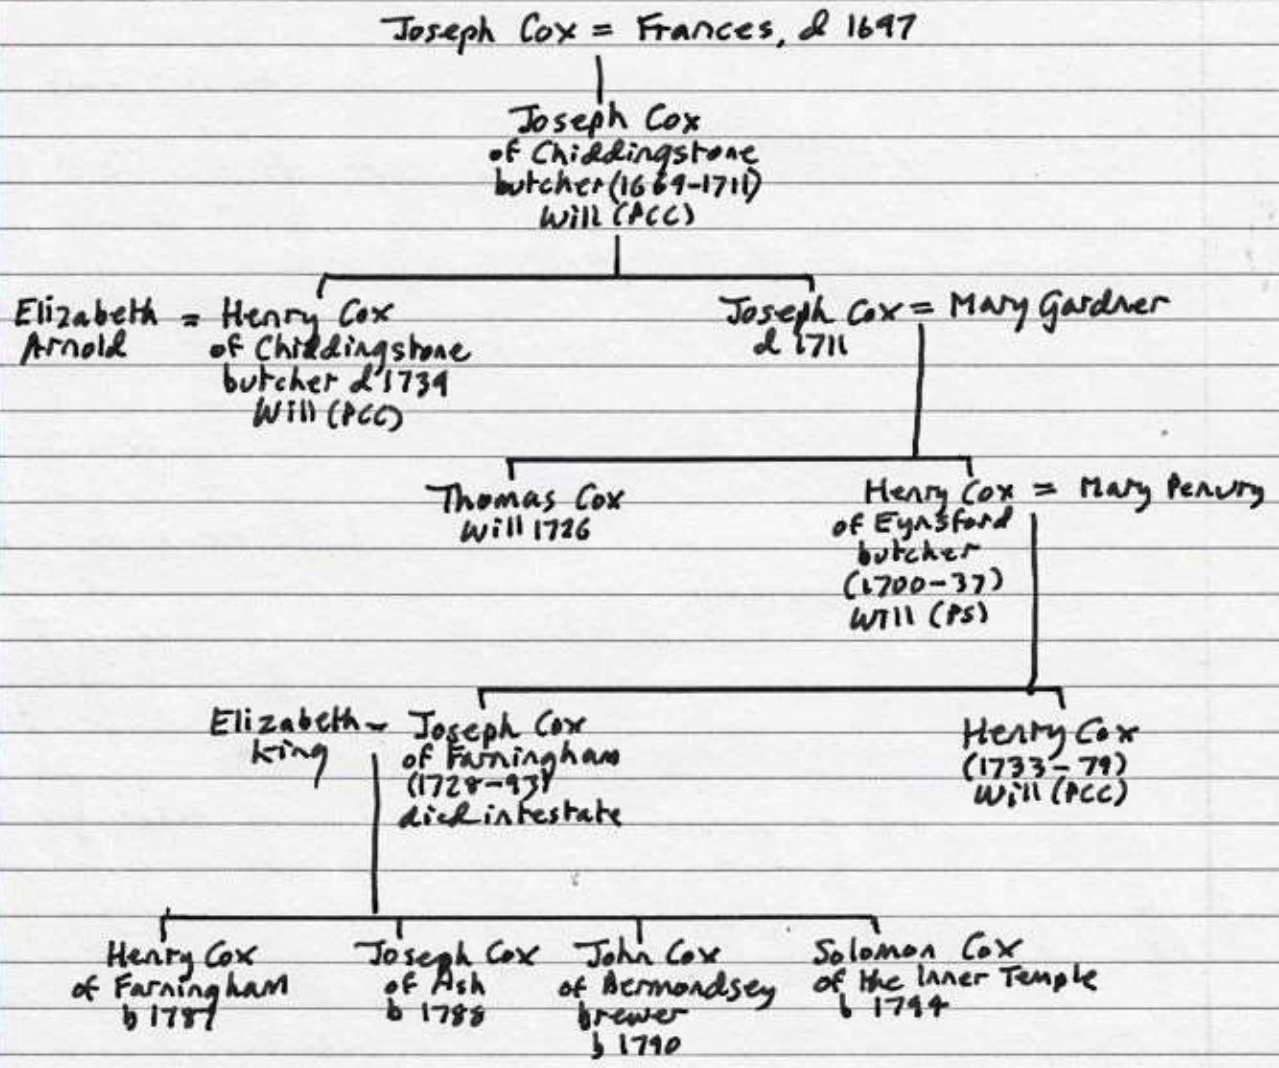 Joseph Cox = Frances, d 1697
Joseph Cox
of Chiddingstone
butcher (1669-1711)
Will (PCC)
Elizabeth = Henry Cox
Arnold
of Chiddingstone
butcher d 1734
Will (PCC)
Joseph Cox = Mary Gardner
d 1711
Thomas Cox
Will 1726
Henry Cox = Mary Penury
of Eynsford
butcher
(1700-37)
Will (PS)
Elizabeth - Joseph Cox
King
of Farningham
(1728-93)
died intestate
Henry Cox
(1733-79)
Will (PCC)
Henry Cox
of Farningham
b 1787
Joseph Cox
of Ash
b 1788
John Cox
of Bermondsey
brewer
b 1790
Solomon Cox
of the Inner Temple
b 1794